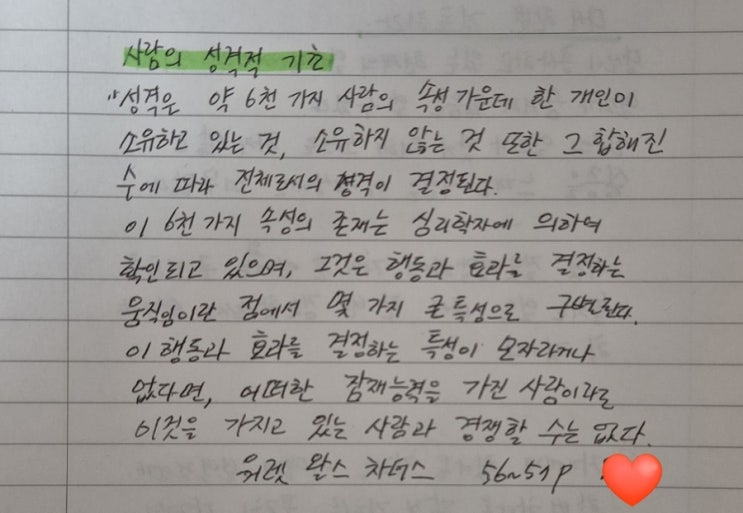 사람의 성격적 기초
"성격은 약 6천 가지 사람의 속성 가운데 한 개인이
소유하고 있는 것, 소유하지 않는 것 또한 그 합해진
수에 따라 전체로서의 성격이 결정된다.
이 6천 가지 속성의 존재는 심리학자에 의하여
확인되고 있으며, 그것은 행동과 효과를 결정하는
움직임이란 점에서 몇 가지 큰 특성으로 구별된다.
이 행동과 효과를 결정하는 특성이 모자라거나
없다면, 어떠한 잠재능력을 가진 사람이라도
이것을 가지고 있는 사람과 경쟁할 수는 없다.
워렛 왈스 차더스 56~57p